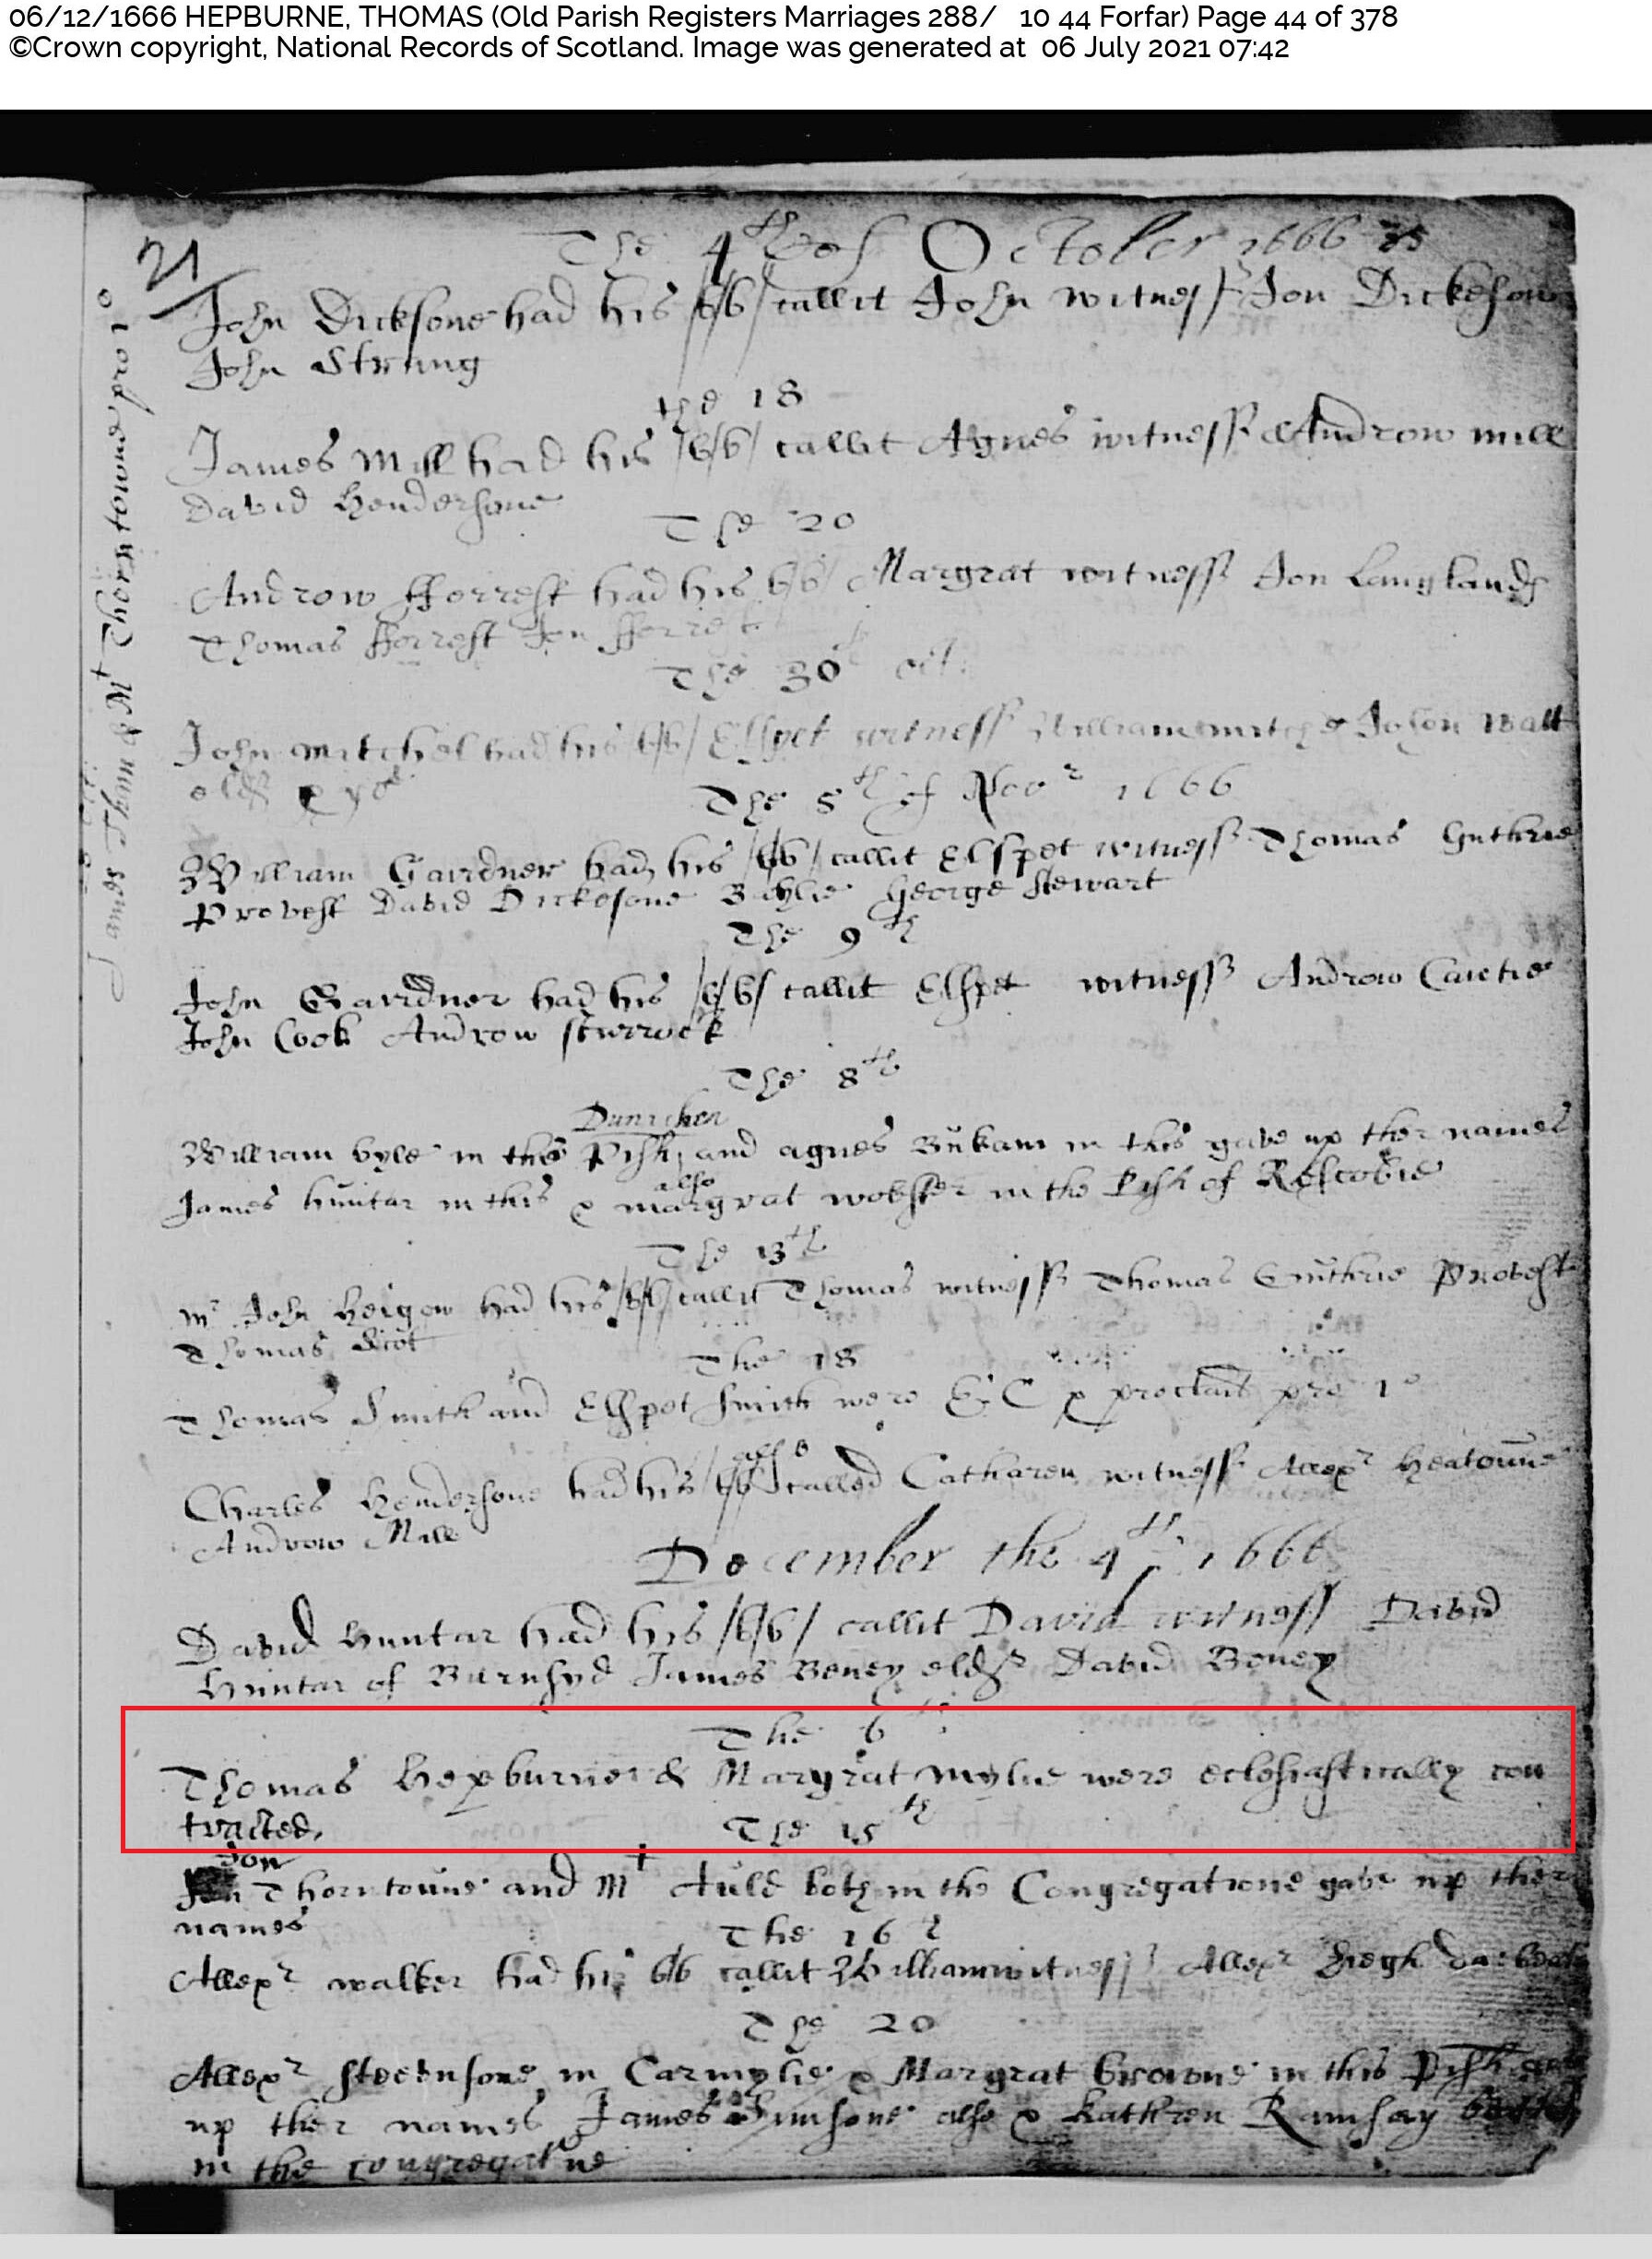 06/12/1666 HEPBURNE, THOMAS (Old Parish Registers Marriages 288/ 10 44 Forfar) Page 44 of 378
©Crown copyright, National Records of Scotland. Image was generated at 06 July 2021 07:42
21
The 4th of October 1666
John Dicksone had his /b/b/ callit John witness Jon Dickesone
John Strang
the 18
James Mill had his /b/b/ callit Agnes witness Androw mill
David Hendersone
The 20
Androw fforrest had his b/b/ Margrat witness Jon Langlands
Thomas fforrest Jon fforrest
The 30 oct:
John mitchel had his /b/b/ Elspet witness William mitche John Watt
eldr
The 5th of Nov r 1666
William Gairdner had his /b/b/ callit Elspet witness Thomas Guthrie
Provest David Dickesone Baylie George Stewart
The 9th
John Gairdner had his /b/b/ callit Elspet witness Androw Cawtie
John Cook Androw Sturrock
The 8th
Dunichen
William in this Pish, and agnes in this gave up ther names
also
James huntar in this & margrat webster in the Pish of Rescobie
The 13th
mr John had his /b/b/ callit Thomas witness Thomas Guthrie Provest
Thomas Scot
The 18
Thomas Smith and Elspet Smith were E:C & proclaid pro 1o
also
Charles Hendersone had his /b/b/ called Catharen witness Allexr
Androw Mill
December the 4th 1666
David huntar had his /b/b/ callit David witness David
Huntar of Burnsyd James Boney eldr David Boney
The 6th
Thomas hepburne & Margrat mylie were eclesiastically con
tracted.
The 15th
Jon
Thorntoune and Mt Auld both in the Congregatione gave up ther
names
The 16
Allexr walker had his b/b callit William witness Allexr
The 20
Allexr Steevnsone in Carmylie & Margrat browne in this Pish
up ther names James Simsone also & Kathren Ramsay
in the congregatne
James Thorntoune pro 1o